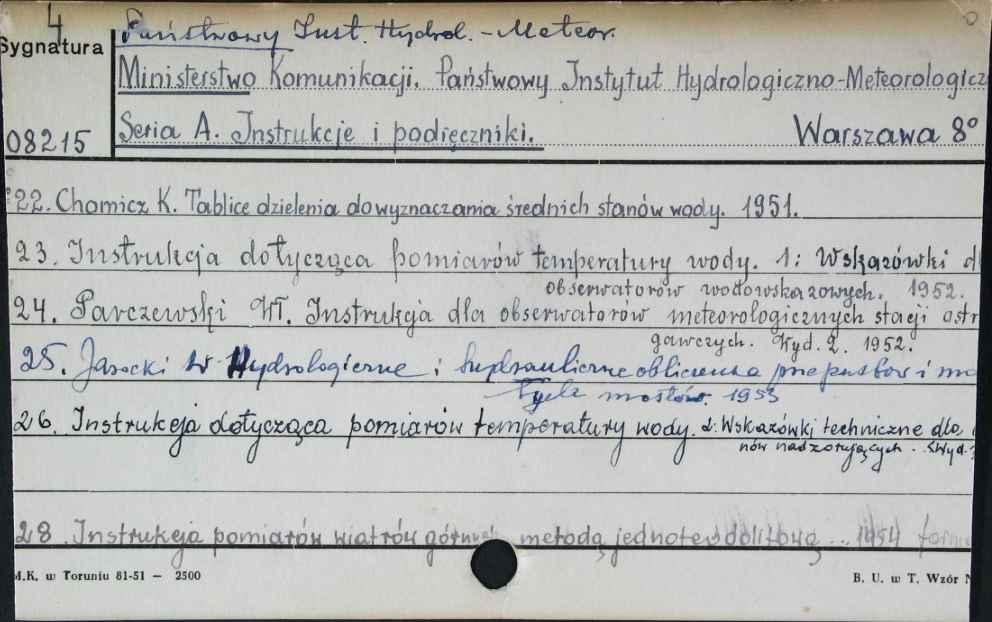 4
Sygnatura
Państwowy Inst. Hydrol. - Meteor.
Ministerstwo Komunikacji. Państwowy Instytut Hydrologiczno-Meteorologicz
08215
Seria A. Instrukcje i podręczniki. Warszawa 8°
22. Chomicz K. Tablice dzielenia do wyznaczania średnich stanów wody. 1951.
23. Instrukcja dotycząca pomiarów temperatury wody. 1: Wskazówki d
obserwatorów wodowskazowych. 1952.
24. Parczewski Wł. Instrukcja dla obserwatorów meteorologicznych stacji
gawczych. Wyd. 2. 1952.
25. Jarocki W Hydrologiczne i hydrauliczne obliczenia przepustów i ma
łych mostów. 1953
26. Instrukcja dotycząca pomiarów temperatury wody. 2: Wskazówki techniczne dla
nów nadzorujących. Wyd.
28. Instrukcja pomiarów wiatrów górnych metodą jednoteodolitową... 1954
M.K. w Toruniu 81-51 - 2500
B. U. w T. Wzór